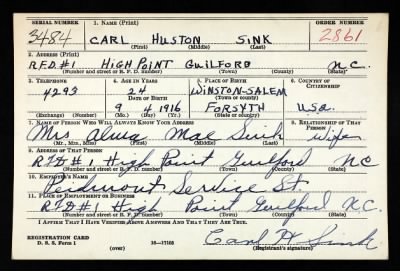 SERIAL NUMBER 1. NAME (Print) ORDER NUMBER
3484 CARL HUSTON SINK 2861
(First) (Middle) (Last)
2. ADDRESS (Print)
R.F.D. #1 HIGH POINT GUILFORD N.C.
(Number and street or R. F. D. number) (Town) (County) (State)
3. TELEPHONE 4. AGE IN YEARS 5. PLACE OF BIRTH 6. COUNTRY OF CITIZENSHIP
4293 24 WINSTON-SALEM
DATE OF BIRTH (Town or county)
9 4 1916 FORSYTH U.S.A.
(Exchange) (Number) (Mo.) (Day) (Yr.) (State or country)
7. NAME OF PERSON WHO WILL ALWAYS KNOW YOUR ADDRESS 8. RELATIONSHIP OF THAT PERSON
Mrs Alma Mae Sink wife
(Mr., Mrs., Miss) (First) (Middle) (Last)
9. ADDRESS OF THAT PERSON
RFD #1 High Point Guilford NC
(Number and street or R. F. D. number) (Town) (County) (State)
10. EMPLOYER'S NAME
Peidmont Service St.
11. PLACE OF EMPLOYMENT OR BUSINESS
RFD #1 High Point Guilford N.C.
(Number and street or R. F. D. number) (Town) (County) (State)
I AFFIRM THAT I HAVE VERIFIED ABOVE ANSWERS AND THAT THEY ARE TRUE.
REGISTRATION CARD
D. S. S. Form 1 (over) 16—17105 Carl H Sink
(Registrant's signature)